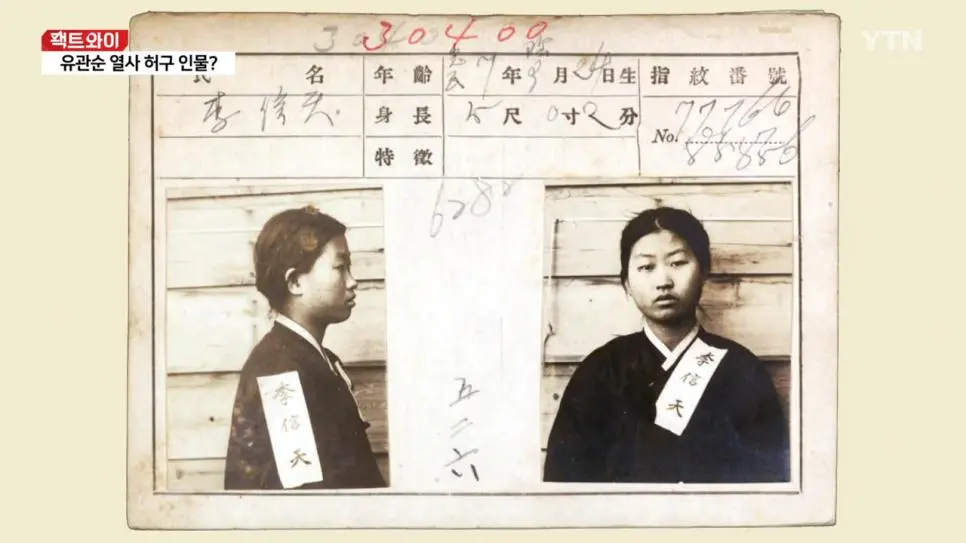 팩트와이
유관순 열사 허구 인물?
YTN
30400
氏 名 年 齡 年 月 24日生 指 紋 番 號
李信天 身 長 5尺0寸2分 No. 77766
特 徵
85856
6282
李信天
李信天
五二六